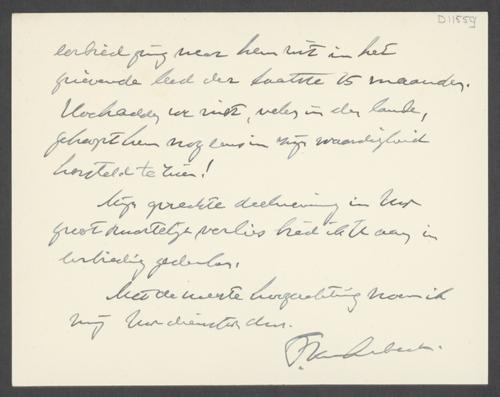 D 11559
eerbied ging naar hem uit in het
grievende leed der laatste 15 maanden.
Noch hadden we niet, velen in den lande,
gehoopt hem nog eens in zijn waardigheid
hersteld te zien!
Mijn oprechte deelneming in Uw
groot smartelijk verlies bied ik U aan in
eerbiedig gedenken.
Met de meeste hoogachting noem ik
mij Uw dienstw. dnr.